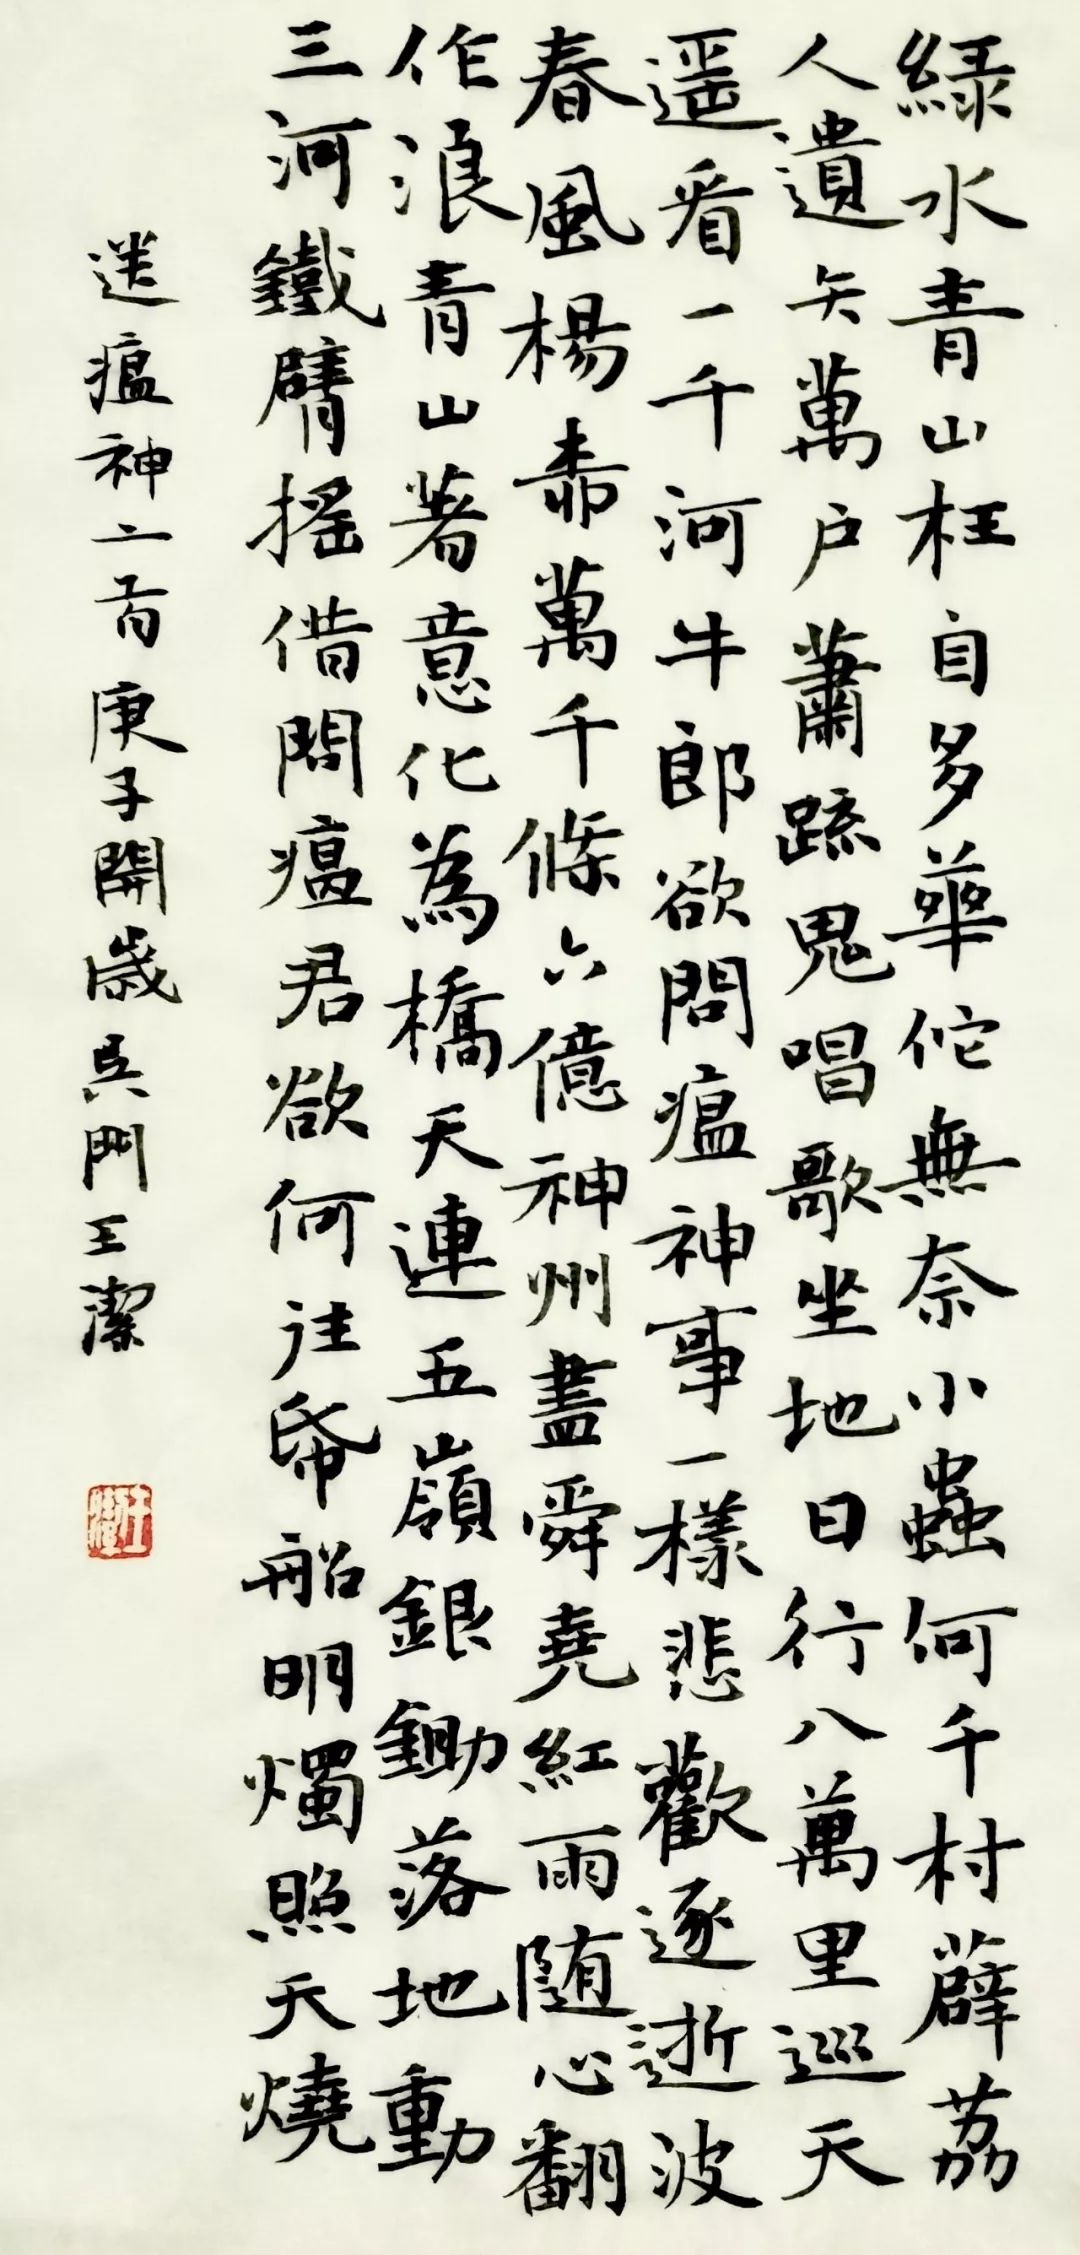 緑水青山枉自多華佗無奈小蟲何千村薜荔
人遺矢萬户蕭疏鬼唱歌坐地日行八萬里巡天
遥看一千河牛郎欲問瘟神事一樣悲歡逐逝波
春風楊柳萬千條六億神州盡舜堯紅雨随心翻
作浪青山著意化為橋天連五嶺銀鋤落地動
三河鐵臂摇借問瘟君欲何往帋船明燭照天燒
送瘟神二首庚子開歲吳門王潔